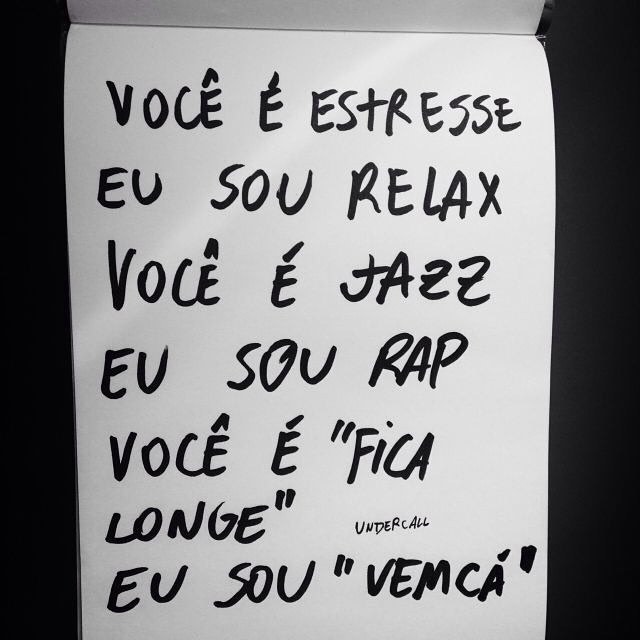 VOCÊ É ESTRESSE
EU SOU RELAX
VOCÊ É JAZZ
EU SOU RAP
VOCÊ É "FICA
LONGE"
UNDERCALL
EU SOU "VEMCÁ"